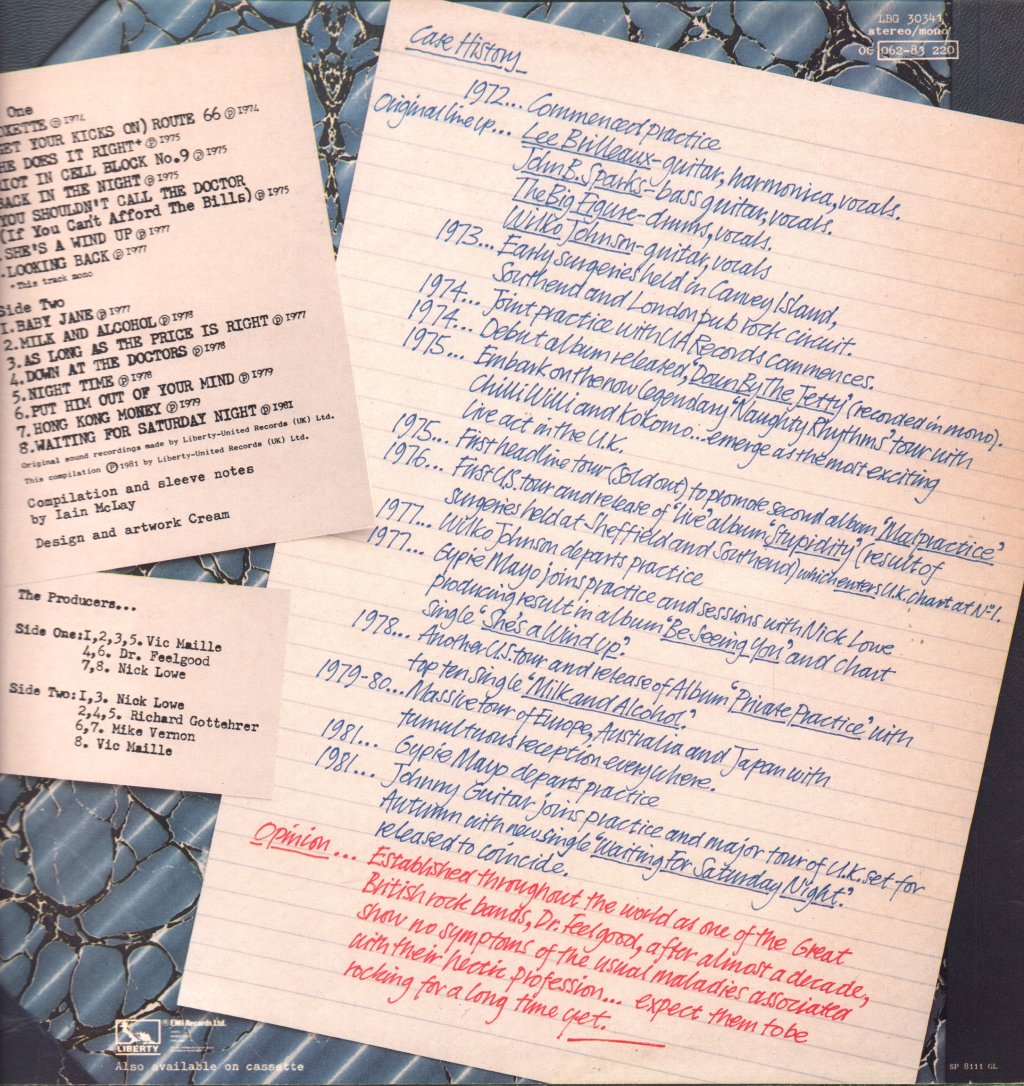 LBG 30341
stereo/mono
OC 062-83 220
One
OXETTE Ⓟ 1974
GET YOUR KICKS ON) ROUTE 66 Ⓟ 1974
HE DOES IT RIGHT* Ⓟ 1975
RIOT IN CELL BLOCK No.9 Ⓟ 1975
BACK IN THE NIGHT Ⓟ 1975
YOU SHOULDN'T CALL THE DOCTOR
(If You Can't Afford The Bills) Ⓟ 1975
.SHE'S A WIND UP Ⓟ 1977
.LOOKING BACK Ⓟ 1977
*This track mono
Side Two
1.BABY JANE Ⓟ 1977
2.MILK AND ALCOHOL Ⓟ 1978
3.AS LONG AS THE PRICE IS RIGHT Ⓟ 1977
4.DOWN AT THE DOCTORS Ⓟ 1978
5.NIGHT TIME Ⓟ 1978
6.PUT HIM OUT OF YOUR MIND Ⓟ 1979
7.HONG KONG MONEY Ⓟ 1979
8.WAITING FOR SATURDAY NIGHT Ⓟ 1981
Original sound recordings made by Liberty-United Records (UK) Ltd.
This compilation Ⓟ 1981 by Liberty-United Records (UK) Ltd.
Compilation and sleeve notes
by Iain McLay
Design and artwork Cream
The Producers...
Side One:1,2,3,5. Vic Maille
4,6. Dr. Feelgood
7,8. Nick Lowe
Side Two:1,3. Nick Lowe
2,4,5. Richard Gottehrer
6,7. Mike Vernon
8. Vic Maille
Case History
1972... Commenced practice
Original line up... Lee Brilleaux-guitar, harmonica, vocals.
John B. Sparks-bass guitar, vocals.
The Big Figure-drums, vocals.
Wilko Johnson-guitar, vocals
1973... Early surgeries held in Canvey Island,
Southend and London pub rock circuit.
1974... Joint practice with UA Records commences.
1974... Debut album released, "Down By The Jetty" (recorded in mono).
1975... Embark on the now legendary "Naughty Rhythms" tour with
Chilli Willi and Kokomo...emerge as the most exciting
live act in the U.K.
1975... First headline tour (sold out) to promote second album "Malpractice"
1976... First U.S. tour and release of "live" album "Stupidity" (result of
surgeries held at Sheffield and Southend) which enters U.K. chart at Nº1.
1977... Wilko Johnson departs practice
1977... Gypie Mayo joins practice and sessions with Nick Lowe
producing result in album "Be Seeing You" and chart
single "She's a Wind up".
1978... Another U.S. tour and release of Album "Private Practice" with
top ten single "Milk and Alcohol".
1979-80... Massive tour of Europe, Australia and Japan with
tumultuous reception everywhere.
1981... Gypie Mayo departs practice
1981... Johnny Guitar joins practice and major tour of U.K. set for
Autumn with new single "Waiting For Saturday Night".
released to coincide.
Opinion... Established throughout the world as one of the Great
British rock bands, Dr. Feelgood, after almost a decade,
show no symptoms of the usual maladies associated
with their hectic profession... expect them to be
rocking for a long time yet.
LIBERTY
® EMI Records Ltd.
Also available on cassette
SP 8111 GL